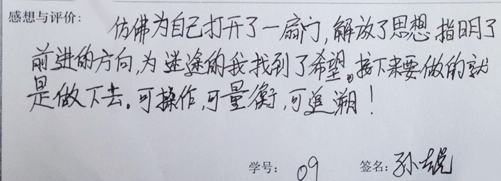 感想与评价:
仿佛为自己打开了一扇门,解放了思想 指明了
前进的方向,为迷途的我找到了希望。接下来要做的就
是做下去。可操作,可量衡,可追溯!
学号: 09 签名: 孙